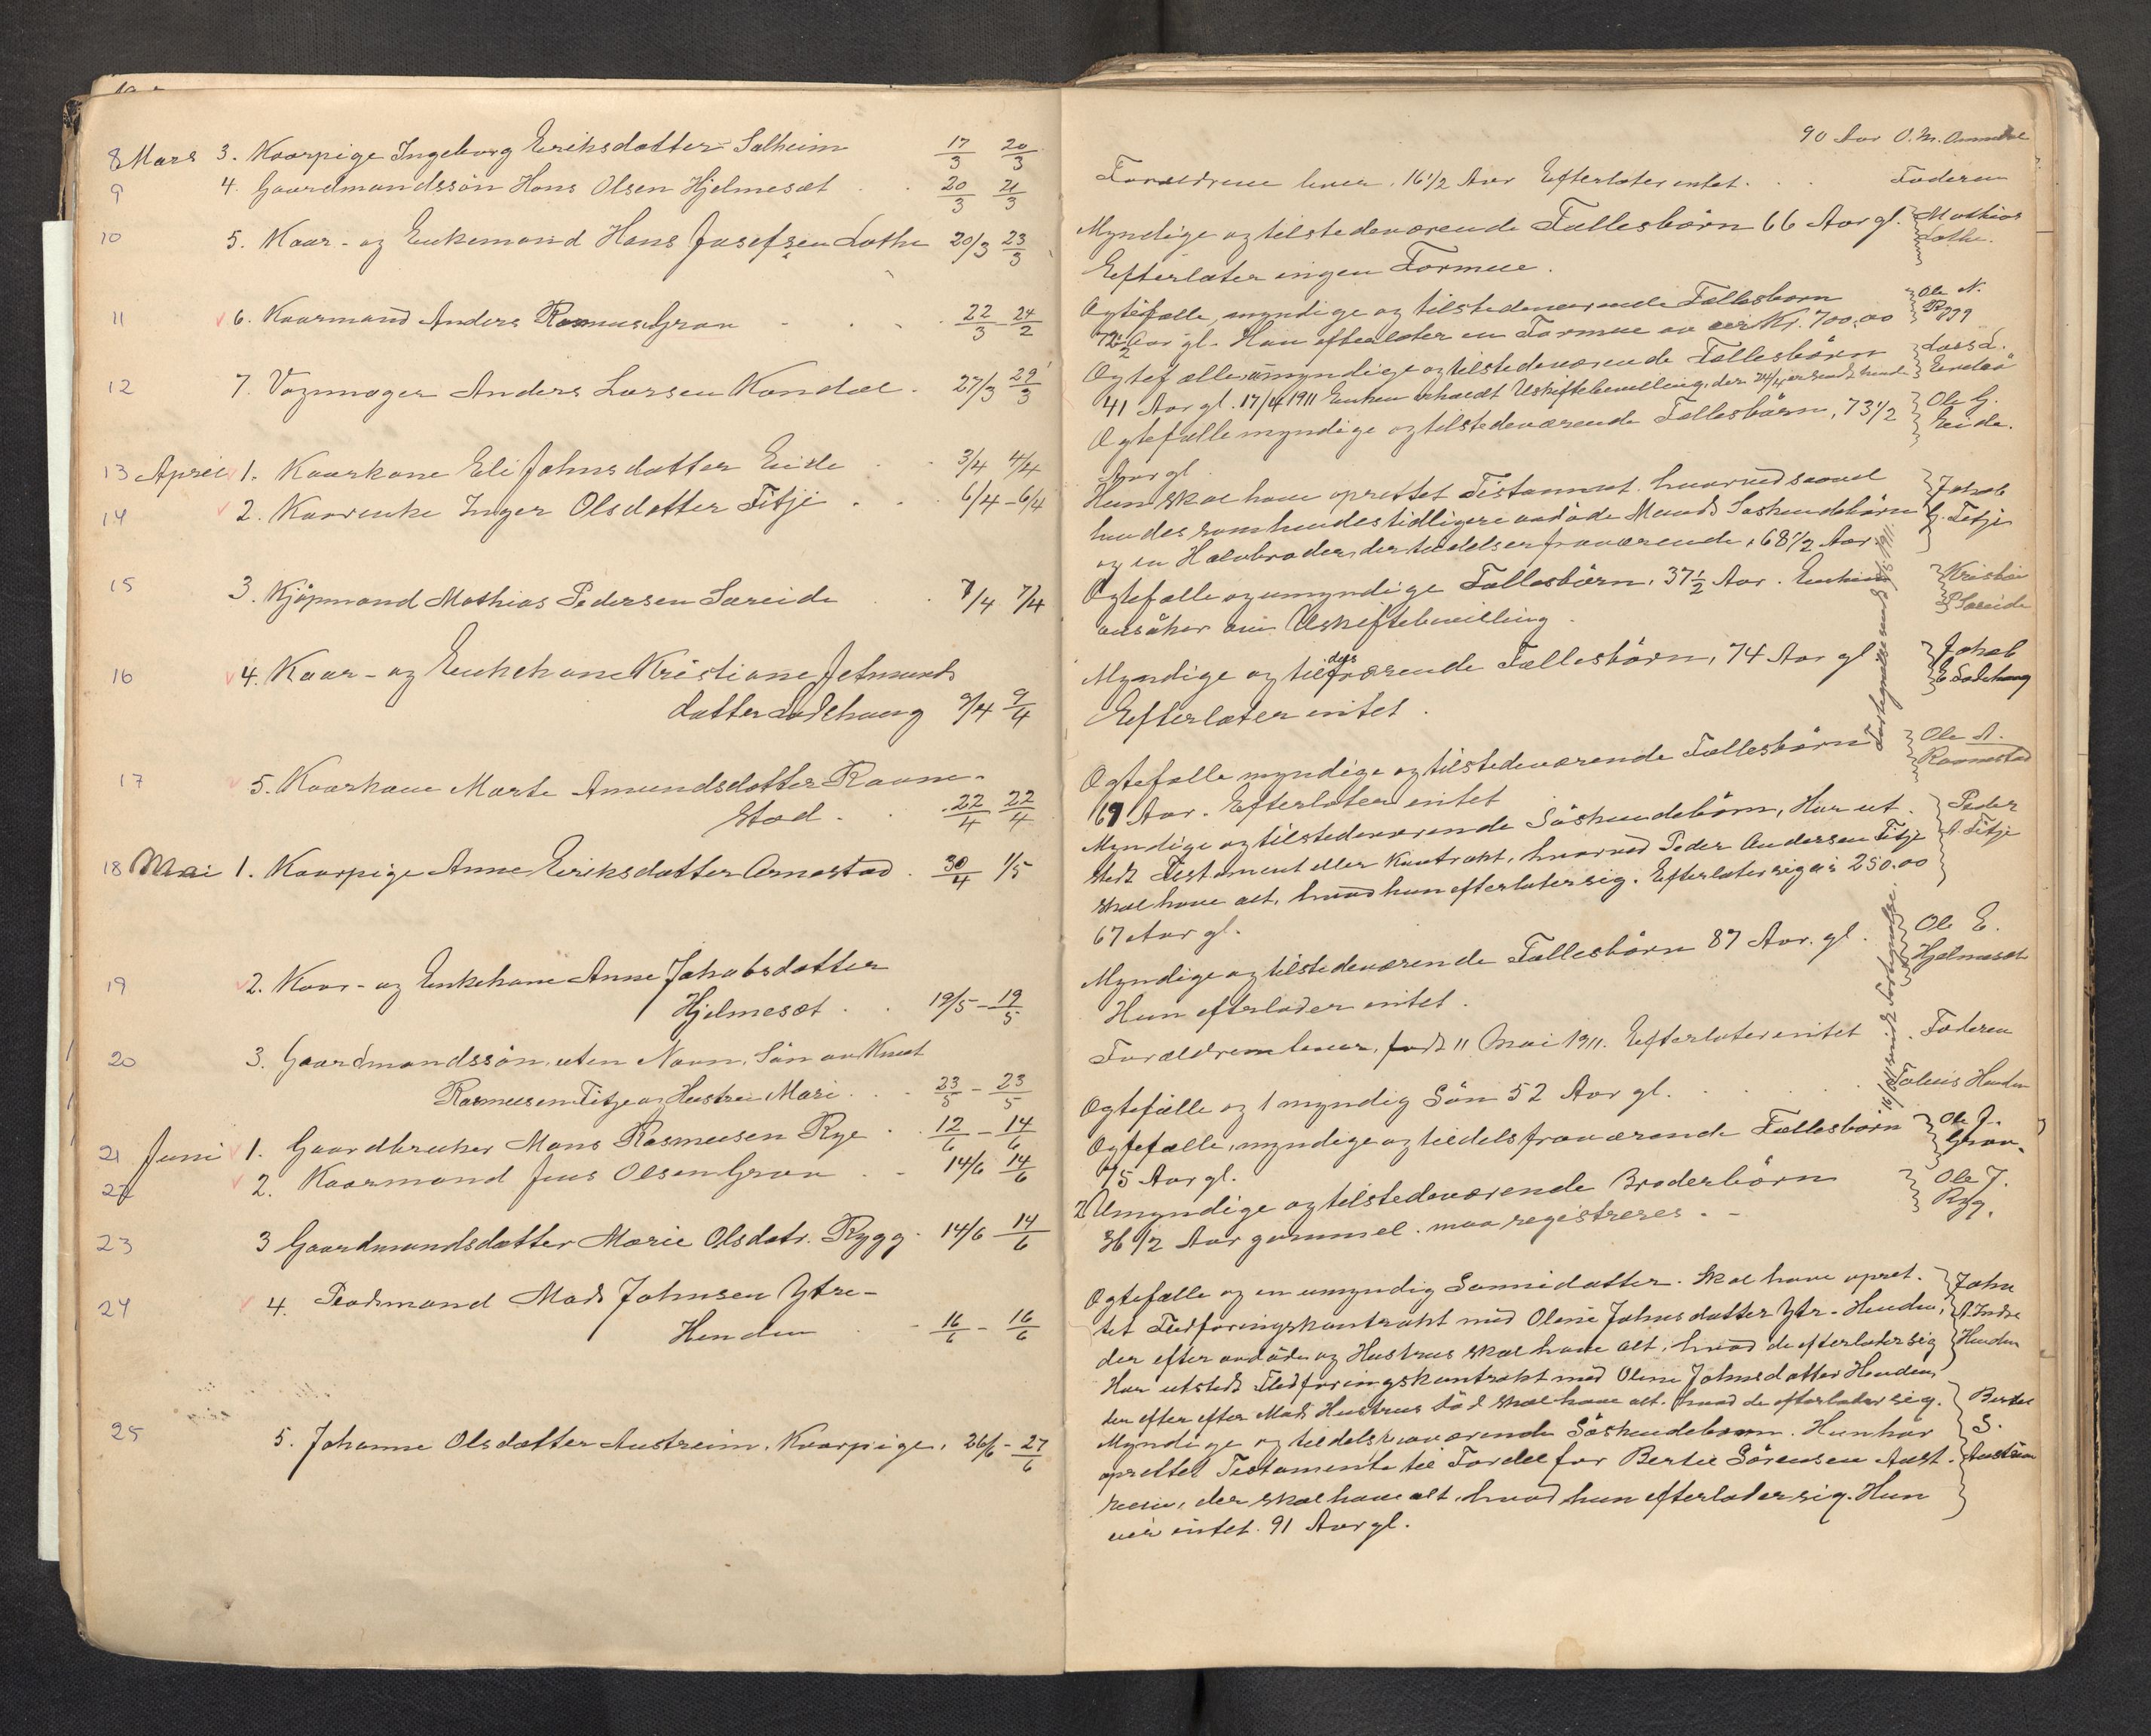 8 Mars 3. Kaarpige Ingeborg Eriksdatter Solheim 17/3 20/3
9 4. Gaardmandssön Hans Olsen Hjelmesæt 20/3 21/3
10 5. Kaar- og Enkemand Hans Josefsen Lothe 20/3 23/3
11 6. Kaarmand Anders Rasmusen Gron 22/3 24/2
12 7. Vognmager Anders Larsen Kandal 27/3 29/3
13 April 1. Kaarkone Eli Johnsdatter Eide 3/4 4/4
14 2. Kaarenke Inger Olsdatter Fitje 6/4 - 6/4
15 3. Kjöpmand Mathias Pedersen Særeide 7/4 7/4
16 4. Kaar- og Enkekone Kristiane Jetmunds
datter Ladehaug 9/4 9/4
17 5. Kaarkone Marte Amundsdatter Ravne-
stad 22/4 22/4
18 Mai 1. Kaarpige Anne Eriksdatter Arnestad 30/4 1/5
19 2. Kaar- og Enkekone Anne Jakobsdatter
Hjelmesæt 19/5 - 19/5
20 3. Gaardmandssön uten Navn, Sön av Knut
Rasmusen Fitje og Hustru Mari 23/5 - 23/5
21 Juni 1. Gaardbruker Mons Rasmusen Rye 12/6 - 14/6
22 2. Kaarmand Jens Olsen Gron 14/6 14/6
23 3 Gaardmandsdatter Marie Olsdatr. Rygg 14/6 14/6
24 4. Mads Johnsen Ytre-
Henden 16/6 - 16/6
25 5. Johanne Olsdatter Austreim, Kaarpige, 26/6 - 27/6
90 Aar O. M.
Forældrene lever, 16 1/2 Aar Efterlater intet. Faderen
Myndige og tilstedeværende Fællesbörn 66 Aar gl. Mathias
Lothe.
Efterlater ingen Formue.
Ogtefælle, myndige og tilstedeværende Fællesbörn Ole N.
72 1/2 Aar gl. Han efterlater en Formue av Kr. 700,00 Rygg
Ogtefælle, umyndige og tilstedeværende Fællesbörn
41 Aar gl. 17/4 1911 Enken erholdt Uskiftebevilling,
Ogtefælle myndige og tilstedeværende Fællesbörn, 73 1/2 Ole G.
Eide.
Aar gl.
Hun skal have oprettet Testament, hvorved saavel Jakob
hendes som hendes tidligere avdöde Mands Söskendebörn G. Fitje
og en Halvbroder, der tildels er fraværende, 68 1/2 Aar.
Ogtefælle og umyndige Fællesbörn, 37 1/2 Aar. Enken Kristine
ansöker om Uskiftebevilling. Særeide
Myndige og tildels værende Fællesbörn, 74 Aar gl Jakob
E. Ladehaug
Efterlater intet.
Ogtefælle myndige og tilstedeværende Fællesbörn Ole A.
Ravnestad
69 Aar. Efterlater intet
Myndige og tilstedeværende Söskendebörn, Har ut- Peder
stedt Testament eller Kontrakt, hvorved Peder Andersen Fitje A. Fitje
skal have alt, hvad hun efterlater sig. Efterlater sig 250.00
67 Aar gl.
Myndige og tilstedeværende Fællesbörn 87 Aar. gl. Ole E.
Hjelmesæt
Hun efterlader intet.
Forældrene lever, født 11 Mai 1911. Efterlater intet Faderen
Ogtefælle og 1 myndig Sön 52 Aar gl. Henden
Ogtefælle, myndige og tildels fraværende Fællesbörn Ole J.
Gron.
75 Aar gl.
2 Umyndige og tilstedeværende Broderbörn Ole J.
36 1/2 Aar gammel. maa registreres. Rygg.
Ogtefælle og en umyndig Sönnedatter. Skal have opret- John
tet Fledføringskontrakt med Oline Johnsdatter Ytr-Henden, A. Indre
der efter avdöde og Hustrus skal have alt, hvad de efterlater sig Henden
Har utstedt Fledføringskontrakt med Oline Johnsdatter Henden,
der efter efter Mads Hustrus död skal have alt, hvad de efterlader sig.
Myndige og tildels fraværende Söskendebørn. Hun har Bertel
oprettet Testamente til Fordel for Bertel Sörensen Aust- S.
reim, der skal have alt, hvad hun efterlader sig. Hun Austreim
eier intet. 91 Aar gl.